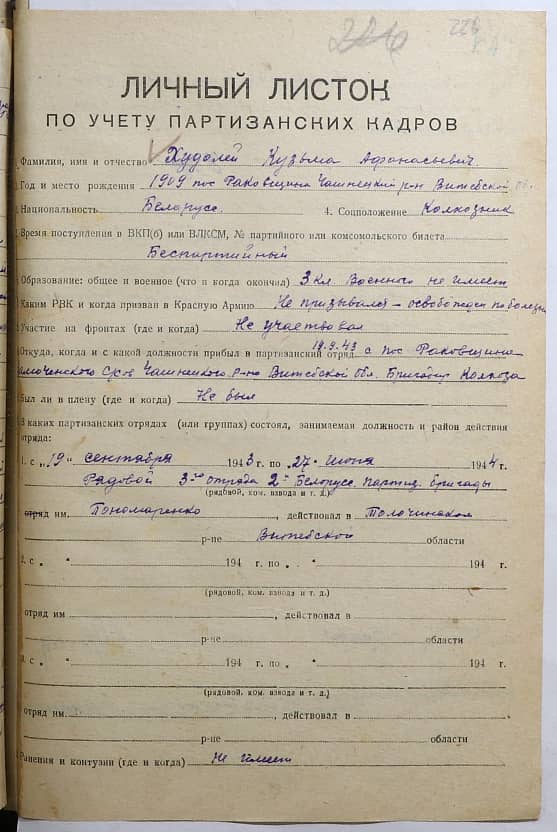 226
ЛИЧНЫЙ ЛИСТОК
ПО УЧЕТУ ПАРТИЗАНСКИХ КАДРОВ
Фамилия, имя и отчество Худолей Кузьма Афанасьевич.
Год и место рождения 1909 пос Раковщина Чашницкий р-н Витебской об.
Национальность Беларусс. 4. Соцположение Колхозник
Время поступления в ВКП(б) или ВЛКСМ, № партийного или комсомольского билета
Беспартийный
Образование: общее и военное (что и когда окончил) 3 кл. Военного не имеет
Каким РВК и когда призван в Красную Армию Не призывался – освобожден по болезн
Участие на фронтах (где и когда) Не участвовал
Откуда, когда и с какой должности прибыл в партизанский отряд 19.9.43 с пос Раковщина
с/сов Чашницкого р-на Витебской обл. Бригадир Колхоза
Был ли в плену (где и когда) Не был
В каких партизанских отрядах (или группах) состоял, занимаемая должность и район действия
отряда:
1. с „19“ сентября 1943 г. по „27“ июня 1944 г.
Рядовой 3-го отряда 2-й Белорусс. партиз. бригады
(рядовой, ком. взвода и т. д.)
отряд им. Пономаренко, действовал в Толочинском
р-не Витебской области
2. с „ “ 194 г. по „ “ 194 г.
(рядовой, ком. взвода и т. д.)
отряд им , действовал в
р-не области
3. с „ “ 194 г. по „ “ 194 г.
(рядовой, ком. взвода и т. д.)
отряд им. , действовал в
р-не области
Ранения и контузии (где и когда) Не имеет